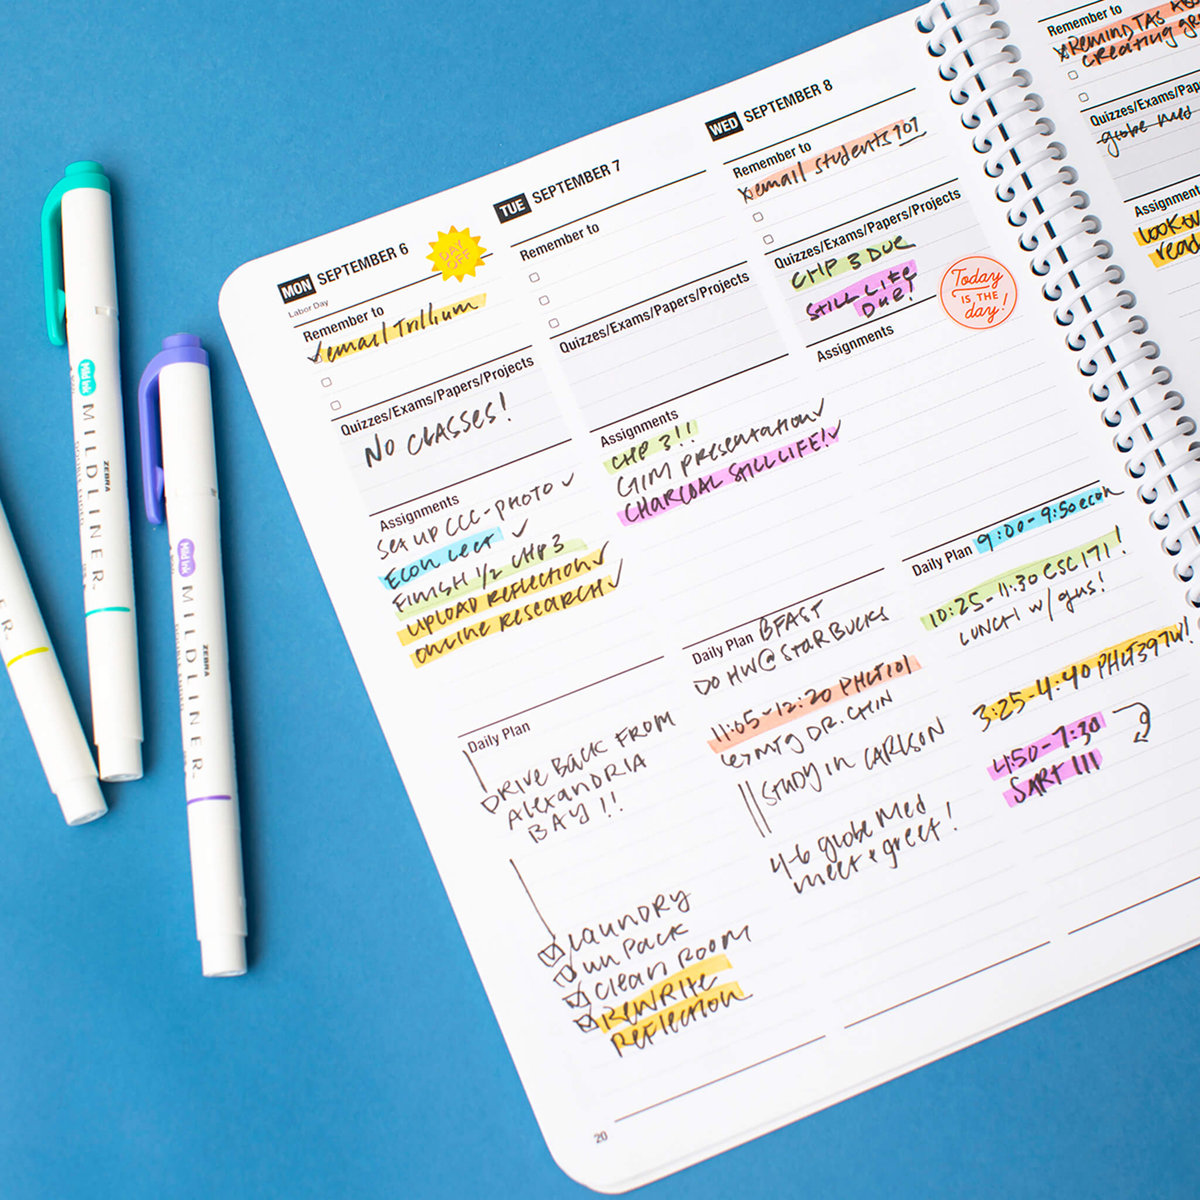 MON SEPTEMBER 6
Labor Day
DAY
OFF
Remember to
email Trillium
Quizzes/Exams/Papers/Projects
NO CLASSES!
Assignments
Set UP CCC-PHOTO ✓
ECON Lect ✓
FINISH 1/2 CHP 3
UPLOAD REFLECTION ✓
ONLINE RESEARCH ✓
Daily Plan
DRIVE BACK FROM
ALEXANDRIA
BAY!!
LAUNDRY
UNPACK
CLEAN ROOM
REWRITE
REFLECTION
20
TUE SEPTEMBER 7
Remember to
Quizzes/Exams/Papers/Projects
Assignments
CHP 3!!
GIM PRESENTATION ✓
CHARCOAL STILL LIFE! ✓
Daily Plan BFAST
DO HW @ STARBUCKS
11:05-12:20 PHLT101
MTG DR. CHIN
STUDY IN CARLSON
4-6 globe Med
meet + greet!
WED SEPTEMBER 8
Remember to
email students 101
Quizzes/Exams/Papers/Projects
CHP 3 DUE
STILL LIFE
DUE!
Today
IS THE
day!
Assignments
Daily Plan 9:00-9:50 econ
10:25-11:30 CSC 171!
LUNCH w/ gus!
3:25-4:40 PHLT397W!
4:50-7:30
SART 111
Remember to
REMIND TAS
CREATING
Quizzes/Exams/Papers
globe med
Assignments
ZEBRA
MILDLINER
Mild Ink
ZEBRA
MILDLINER
Mild Ink